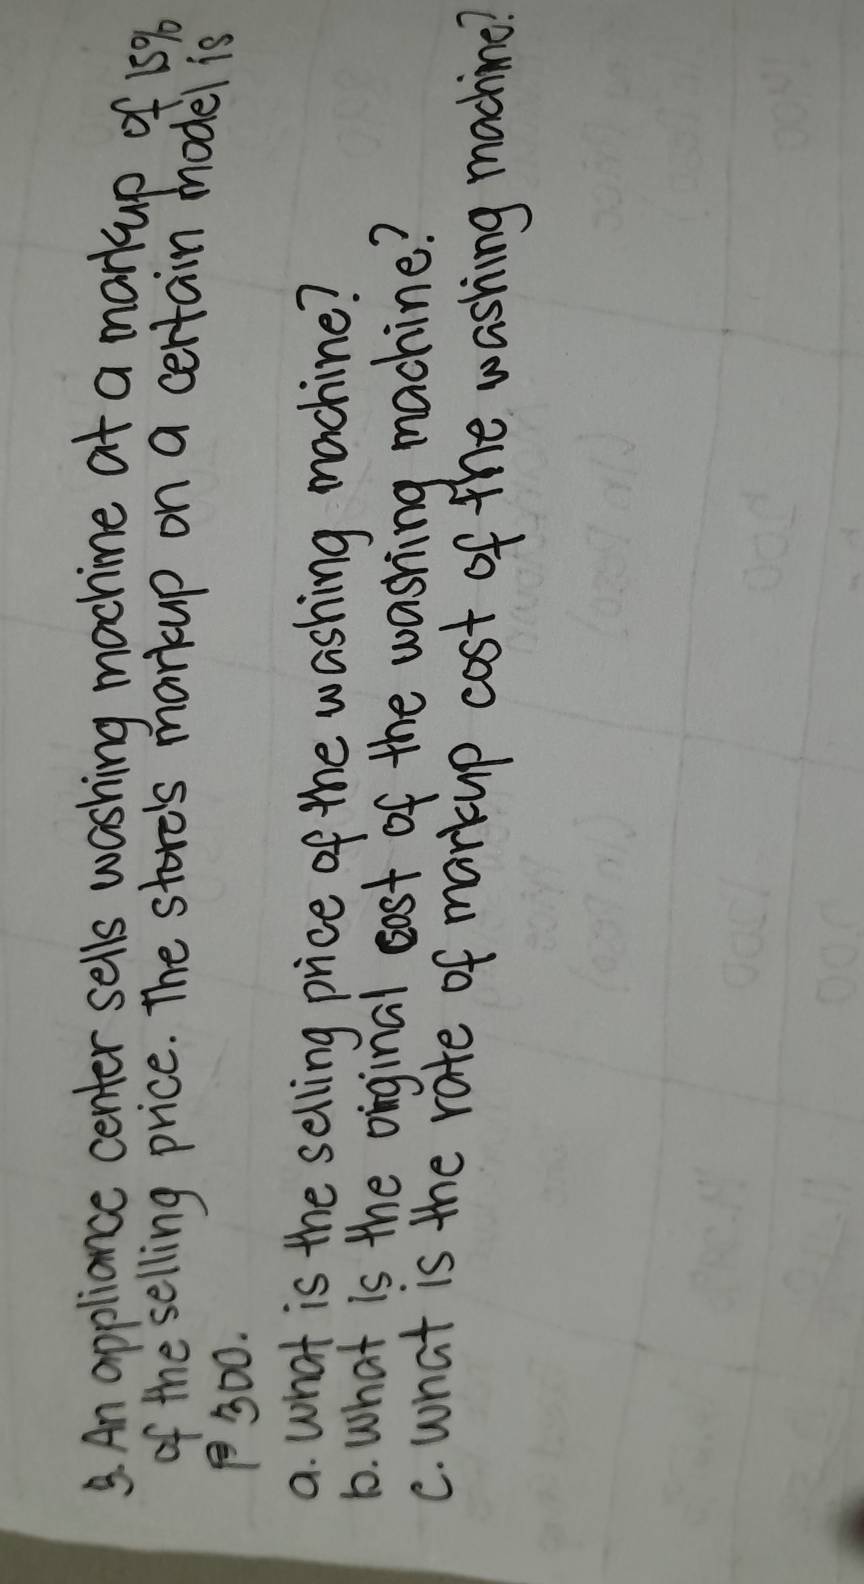 3. An appliance center sells washing machine at a markup of 15%
of the selling price. The store's markup on a certain model is
₱300.
a. What is the selling price of the washing machine?
b. What is the original cost of the washing machine?
c. What is the rate of markup cost of the washing machine?